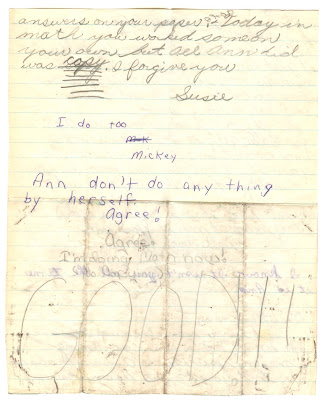 answers on your paper. Today in
math you worked someon
your own but all Ann did
was copy. I forgive you
Susie
I do too
Mickey
Ann don't do any thing
by herself.
Agree!
Agree!
I'm doing now!